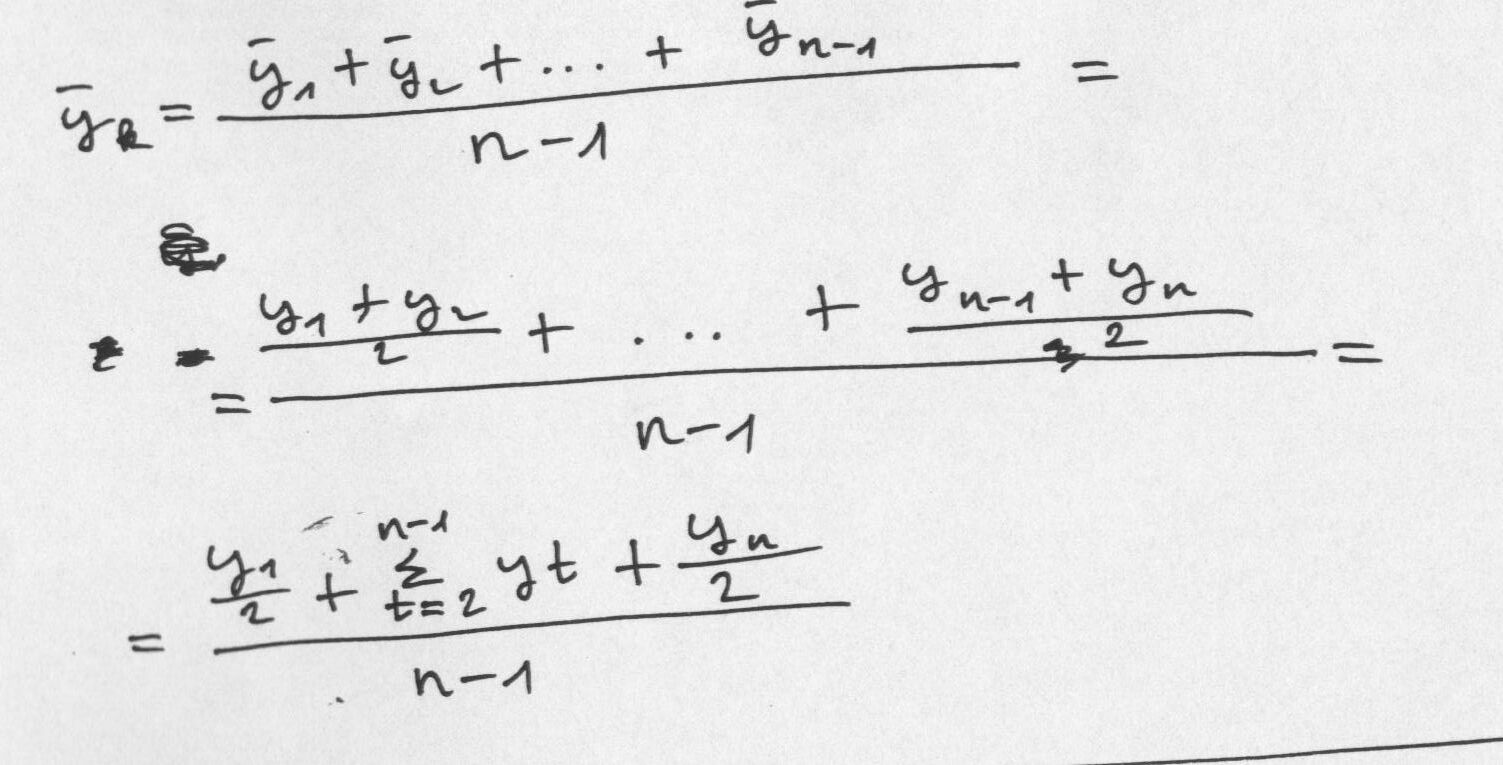 ȳₖ = (ȳ₁ + ȳ₂ + ... + ȳₙ₋₁) / (n-1) =
= ((y₁ + y₂)/2 + ... + (yₙ₋₁ + yₙ)/2) / (n-1) =
= (y₁/2 + Σ_{t=2}^{n-1} yt + yₙ/2) / (n-1)